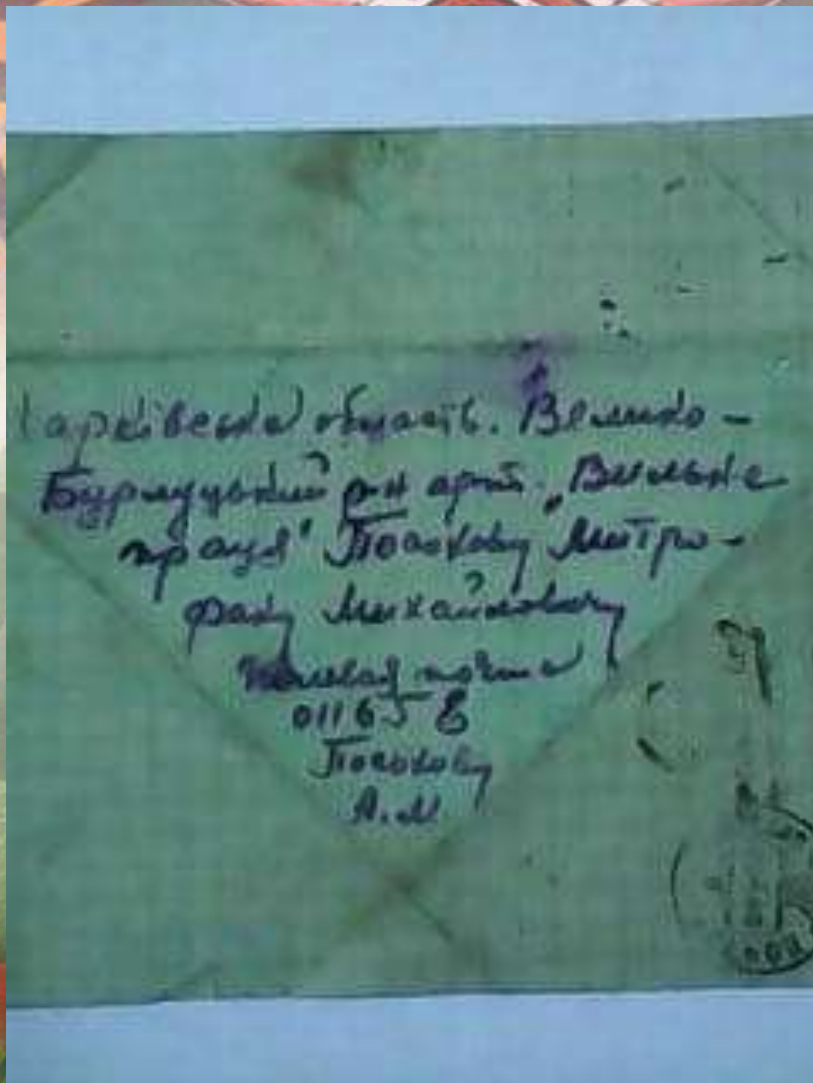 Харківська область. Велико-
Бурлуцький р-н арт. "Вильна
праця" Посохову Митро-
фану Михайловичу
Полевая почта
01165 Б
Посохову
А.М